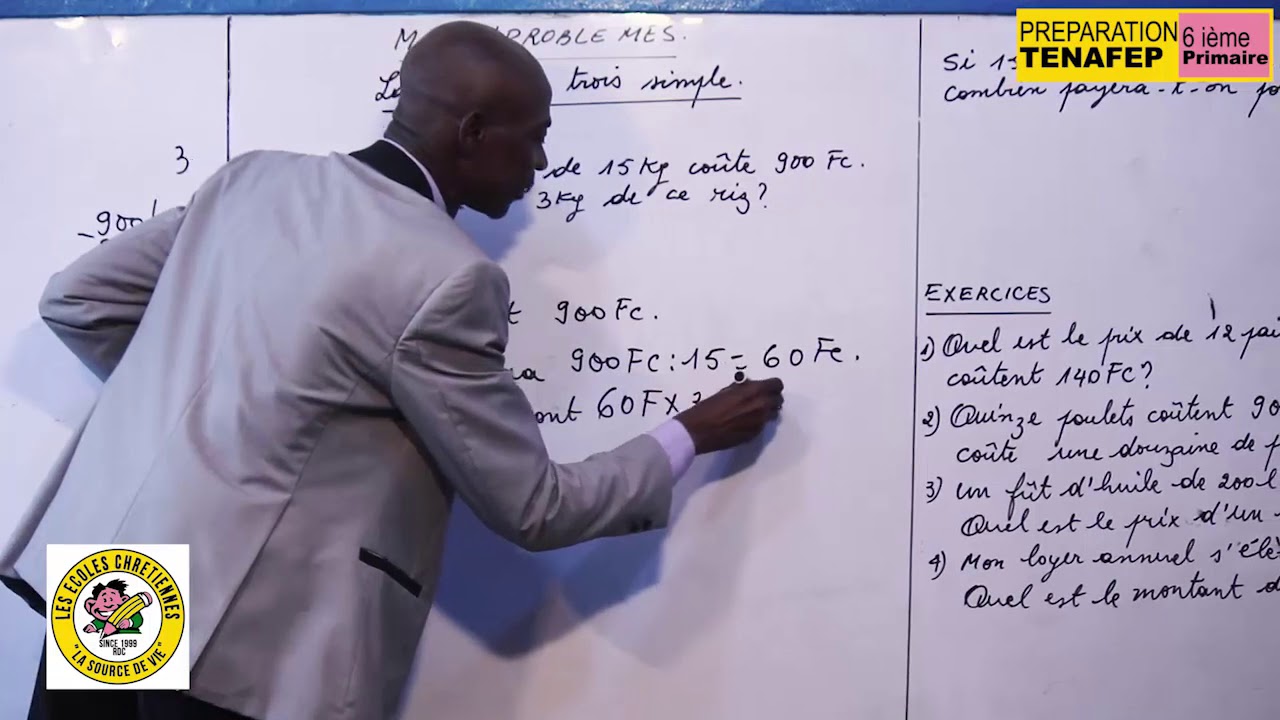 PREPARATION
TENAFEP
6 ième
Primaire
PROBLEMES.
trois simple.
3
900
de 15 Kg coûte 900 Fc.
3Kg de ce riz?
900 Fc.
900 Fc : 15 = 60 Fc.
60 F X
Si
combien payera-t-on
EXERCICES
1) Quel est le prix de 12
coûtent 140 FC?
2) Quinze poulets coûtent
coûte une douzaine de
3) un fût d'huile de 200 l
Quel est le prix d'un
4) Mon loyer annuel
Quel est le montant
LES ECOLES CHRETIENNES
SINCE 1999
RDC
"LA SOURCE DE VIE"